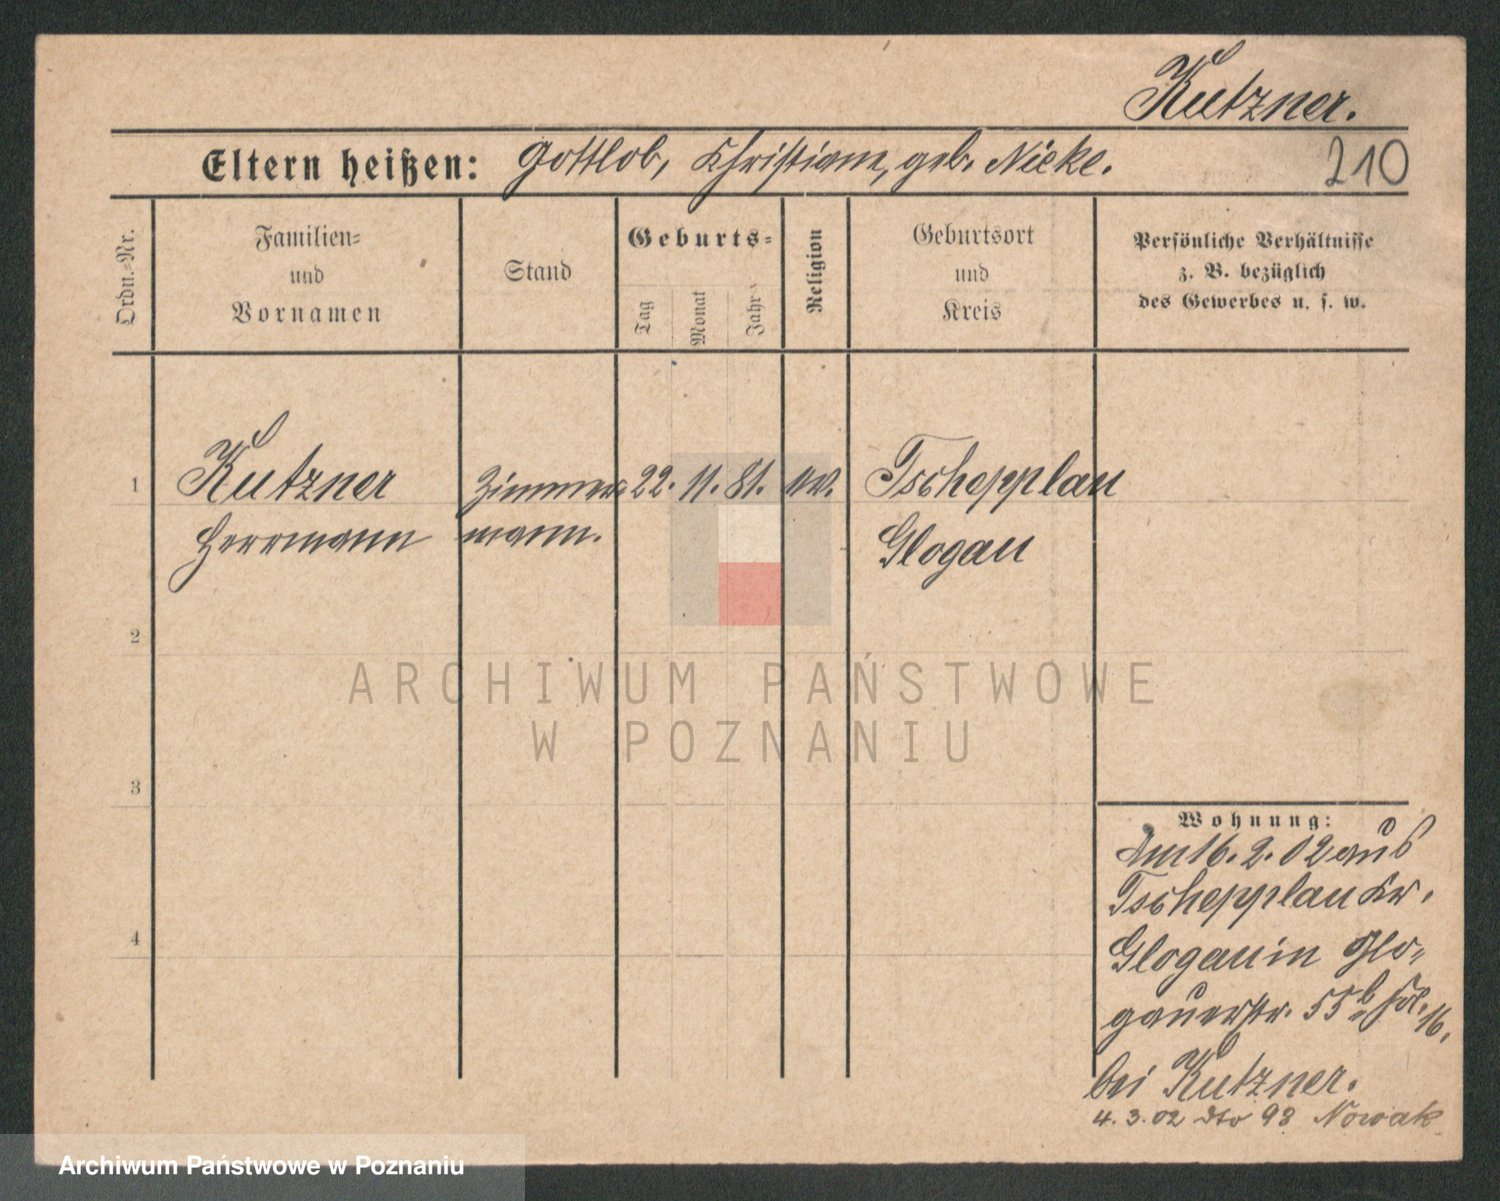 Kutzner.
Eltern heißen: Gottlob, Christiane, geb. Nieke.
210
Ordn.=Nr.
Familien=
und
Vornamen
Stand
Geburts=
Tag
Monat
Jahr
Religion
Geburtsort
und
Kreis
Persönliche Verhältnisse
z. B. bezüglich
des Gewerbes u. s. w.
1 Kutzner Zimmer 22. 11. 81. ev. Tschepplau
Herrmann mann. Glogau
2
3
4
Wohnung:
Am 16. 2. 02 aus
Tschepplau Kr.
Glogau in Glo-
gauerstr. 55b
16.
bei Kutzner.
4. 3. 02 dto 93 Nowak
ARCHIWUM PAŃSTWOWE
W POZNANIU
Archiwum Państwowe w Poznaniu